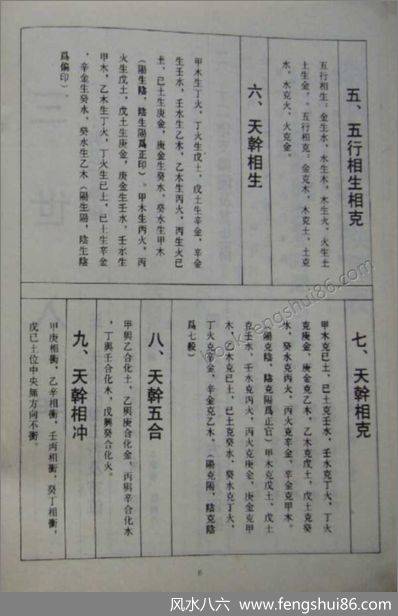 五、五行相生相克
五行相生。金生水，水生木，木生火，火生土
土生金。。五行相克。金克木，木克土，土克
水，水克火，火克金。
六、天幹相生
甲木生丁火，丁火生戊土，戊土生辛金，辛金
生壬水，壬水生乙木，乙木生丙火，丙生火已
土，已土生庚金，庚金生癸水，癸水生甲木
（陽生陰，陰生陽爲正印）。甲木生丙火，丙
火生戊土，戊土生庚金，庚金生壬水，壬水生
甲木，乙木生丁火，丁火生已土，已土生辛金
，辛金生癸水，癸水生乙木（陽生陽，陰生陰
爲偏印）。
七、天幹相克
甲木克已土，已土克壬水，壬水克丁火，丁火
克庚金，庚金克乙木，乙木克戊土，戊土克癸
水，癸水克丙火，丙火克辛金，辛金克甲木。
（陽克陰，陰克陽爲正官）甲木克戊土，戊土
克壬水，壬水克丙火，丙火克庚金，庚金克甲
木，乙木克已土，已土克癸水，癸水克丁火，
丁火克辛金，辛金克乙木。（陽克陽，陰克陰
爲七殺）
八、天幹五合
甲與乙合化土，乙與庚合化金，丙與辛合化水
，丁與壬合化木，戊與癸合化火。
九、天幹相冲
甲庚相衝，乙辛相衝，壬丙相衝，癸丁相衝，
戊已土位中央無方向不衝。
6
www.fengshui86.com
风水八六：www.fengshui86.com